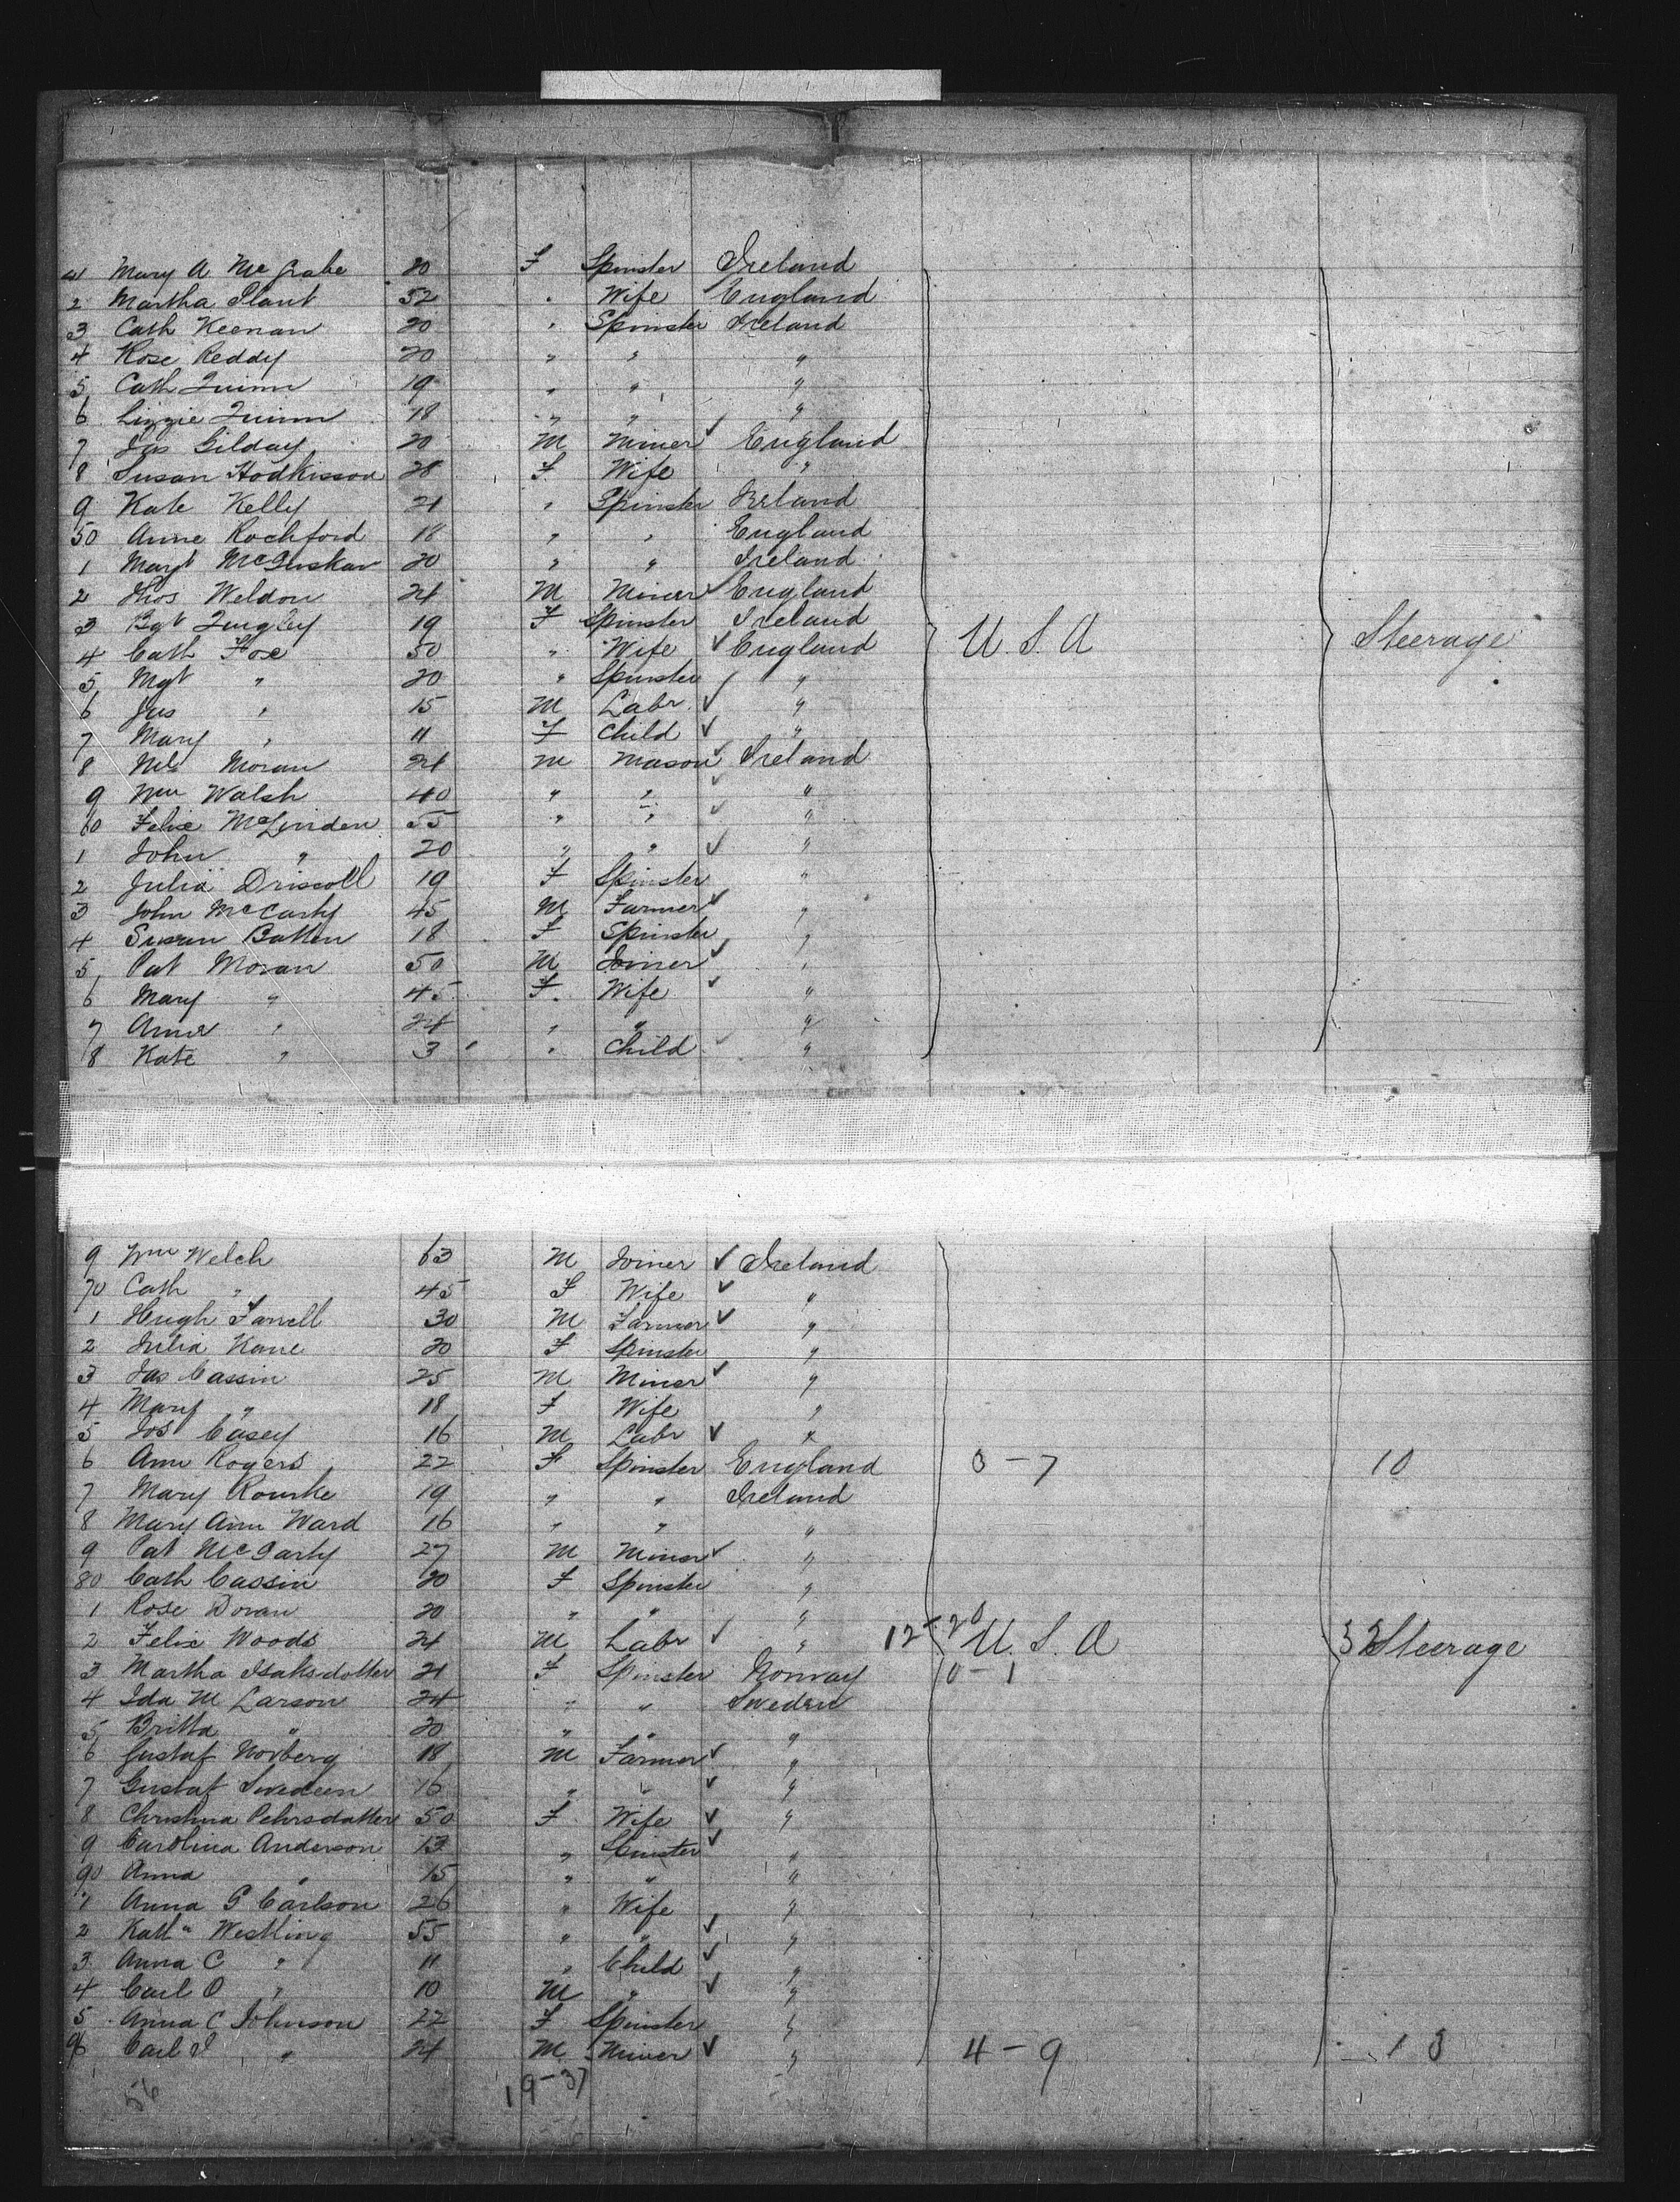 41 Mary A McGrabe 20 F Spinster Ireland
2 Martha Plant 52 " Wife England
3 Cath Keenan 20 " Spinster Ireland
4 Rose Reddy 20 " " "
5 Cath Quinn 19 " " "
6 Lizzie Quinn 18 " " "
7 Jas Gilday 20 M Miner ✓ England
8 Susan Hodkisson 28 F Wife "
9 Kate Kelly 21 " Spinster Ireland
50 Anne Rochford 18 " " England
1 Margt 20 " " Ireland
2 Thos Weldon 24 M Miner ✓ England
3 Bgt Quigley 19 F Spinster Ireland
4 Cath Fox 50 " Wife ✓ England U.S.A Steerage
5 Mgt " 20 " Spinster ✓ "
6 Jas " 15 M Labr ✓ "
7 Mary " 11 F Child ✓ "
8 Mls Moran 24 M Mason ✓ Ireland
9 Wm Walsh 40 " " ✓ "
60 Felix McLinden 55 " " ✓ "
1 John " 20 " " ✓ "
2 Julia Driscoll 19 F Spinster "
3 John McCarty 45 M Farmer ✓ "
4 Susan Batten 18 F Spinster "
5 Pat Moran 50 M Joiner ✓ "
6 Mary " 45 F Wife ✓ "
7 Anne " 24 " " "
8 Kate " 3 " Child ✓ "
9 Wm Welch 63 M Joiner ✓ Ireland
70 Cath " 45 F Wife ✓ "
1 Hugh Farrell 30 M Farmer ✓ "
2 Julia Kane 20 F Spinster "
3 Jas Cassin 25 M Miner ✓ "
4 Mary " 18 F Wife "
5 Jos Casey 16 M Labr ✓ "
6 Ann Rogers 22 F Spinster England 3-7 10
7 Mary Rourke 19 " " Ireland
8 Mary Ann Ward 16 " " "
9 Pat McGarty 27 M Miner ✓ "
80 Cath Cassin 20 F Spinster "
1 Rose Doran 20 " " "
2 Felix Woods 24 M Labr ✓ " 12-20 U.S.A 32 Steerage
3 Martha Isaksdotter 21 F Spinster Norway 0-1
4 Ida M Larson 24 " " Sweden
5 Britta " 20 " " "
6 Gustaf Norberg 18 M Farmer ✓ "
7 Gustaf Swedeen 16 " " ✓ "
8 Christina Pehrsdatter 50 F Wife ✓ "
9 Carolina Anderson 13 " Spinster ✓ "
90 Anna " 15 " " "
1 Anna G Carlson 26 " Wife "
2 Kath" Westling 55 " " ✓ "
3 Anna C " 11 " Child ✓ "
4 Carl O " 10 M " ✓ "
5 Anna C Johnson 22 F Spinster "
96 Carl " 24 M Miner ✓ " 4-9 13
56 19-37